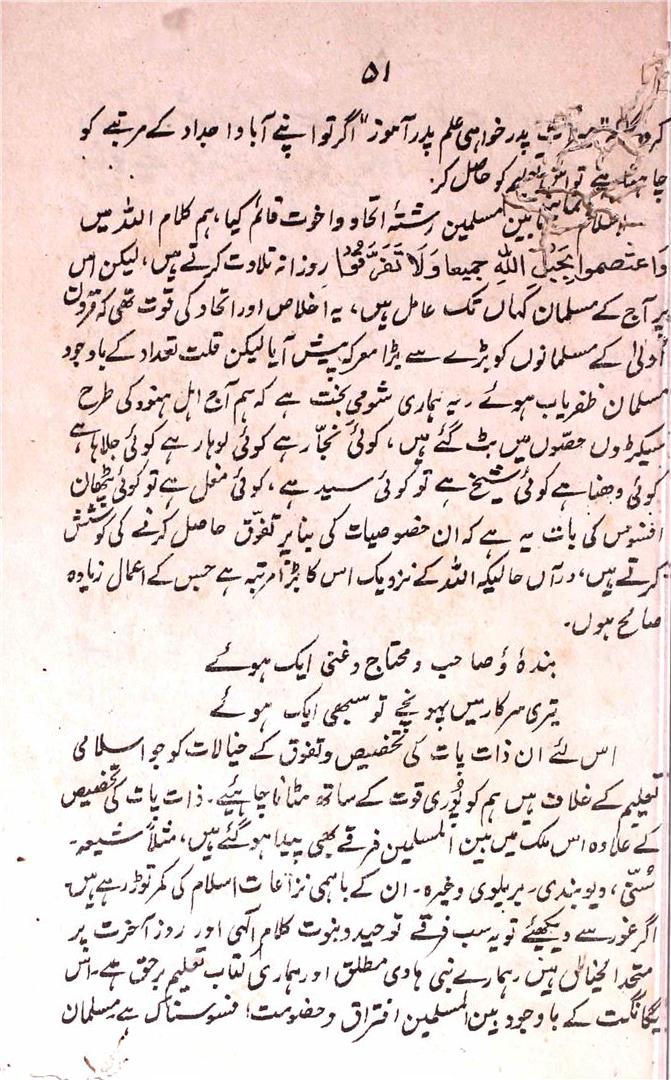 ۵۱
پدر خواہی علم پدر آموز" اگر تو اپنے آبا و اجداد کے مرتبے کو
چاہتا ہے تو اس تعلیم کو حاصل کر۔
اسلام نے مابین المسلمین رشتۂ اتحاد و اخوت قائم کیا، ہم کلام اللہ میں
واعتصموا بِحَبْلِ اللهِ جمیعا وَلَا تَفَرَّقُوْا روزانہ تلاوت کرتے ہیں، لیکن اس
پر آج کے مسلمان کہاں تک عامل ہیں، یہ اخلاص اور اتحاد کی قوت تھی کہ قرون
اُولیٰ کے مسلمانوں کو بڑے سے بڑا معرکہ پیش آیا لیکن قلت تعداد کے باوجود
مسلمان ظفریاب ہوئے۔ یہ ہماری شومیٔ بخت ہے کہ ہم آج اہل ہنود کی طرح
سیکڑوں حصّوں میں بٹ گئے ہیں، کوئی نجّار ہے کوئی لوہار ہے کوئی جلاہا ہے
کوئی دھنا ہے کوئی شیخ ہے تو کوئی سید ہے، کوئی مغل ہے تو کوئی پٹھان
افسوس کی بات یہ ہے کہ ان خصوصیات کی بنا پر تفوّق حاصل کرنے کی کوشش
کرتے ہیں، درآں حالیکہ اللہ کے نزدیک اس کا بڑا مرتبہ ہے جس کے اعمال زیادہ
صالح ہوں۔
بندہ و صاحب و محتاج و غنی ایک ہوئے
تیری سرکار میں پہونچے تو سبھی ایک ہوئے
اس لئے ان ذات پات کی تخصیص و تفوق کے خیالات کو جو اسلامی
تعلیم کے خلاف ہیں ہم کو پُوری قوت کے ساتھ مٹانا چاہئیے۔ ذات پات کی تخصیص
کے علاوہ اس ملک میں بین المسلمین فرقے بھی پیدا ہو گئے ہیں، مثلاً شیعہ۔
سُنّی، دیوبندی۔ بریلوی وغیرہ۔ ان کے باہمی نزاعات اسلام کی کمر توڑ رہے ہیں۔
اگر غور سے دیکھئے تو یہ سب فرقے توحید و نبوت کلام الٰہی اور روز آخرت پر
متحد الخیال ہیں، ہمارے نبی ہادی مطلق اور ہماری کتاب تعلیم برحق ہے۔ اس
یگانگت کے باوجود بین المسلمین افتراق و خصومت افسوسناک ہے۔ مسلمان